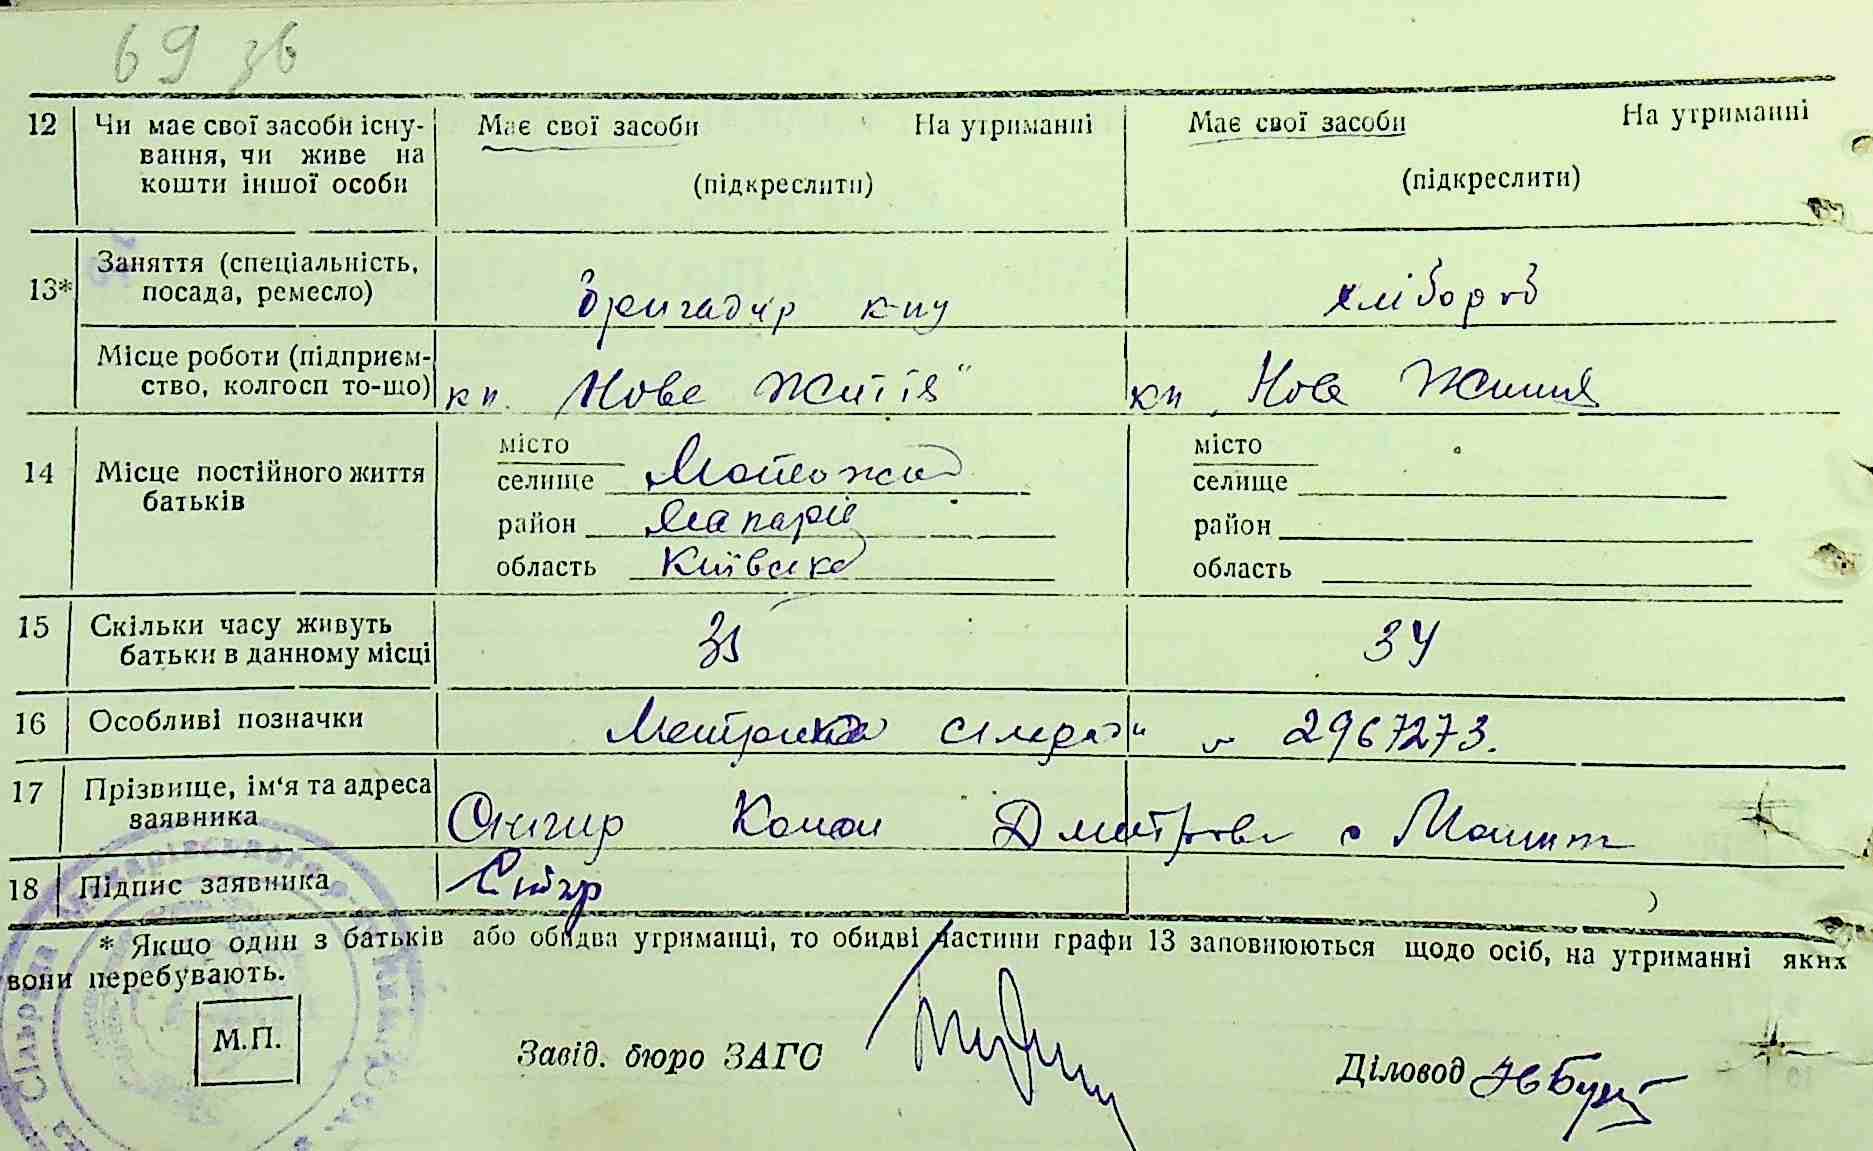 69 зв
12 Чи має свої засоби існу- Має свої засоби На утриманні Має свої засоби На утриманні
вання, чи живе на
кошти іншої особи (підкреслити) (підкреслити)
13* Заняття (спеціальність,
посада, ремесло) Бригадир к-пу хлібороб
Місце роботи (підприєм-
ство, колгосп то-що) кп. Нове Життя" кп Нове Життя
місто місто
14 Місце постійного життя селище селище
батьків район Макарів район
область Київська область
15 Скільки часу живуть 35 34
батьки в данному місці
16 Особливі позначки Метрика 2967273.
17 Прізвище, ім'я та адреса
заявника Снігир Дмитров с
18 Підпис заявника Снігир
* Якщо один з батьків або обидва утриманці, то обидві частини графи 13 заповнюються щодо осіб, на утриманні яких
вони перебувають.
М.П. Завід. бюро ЗАГС Діловод